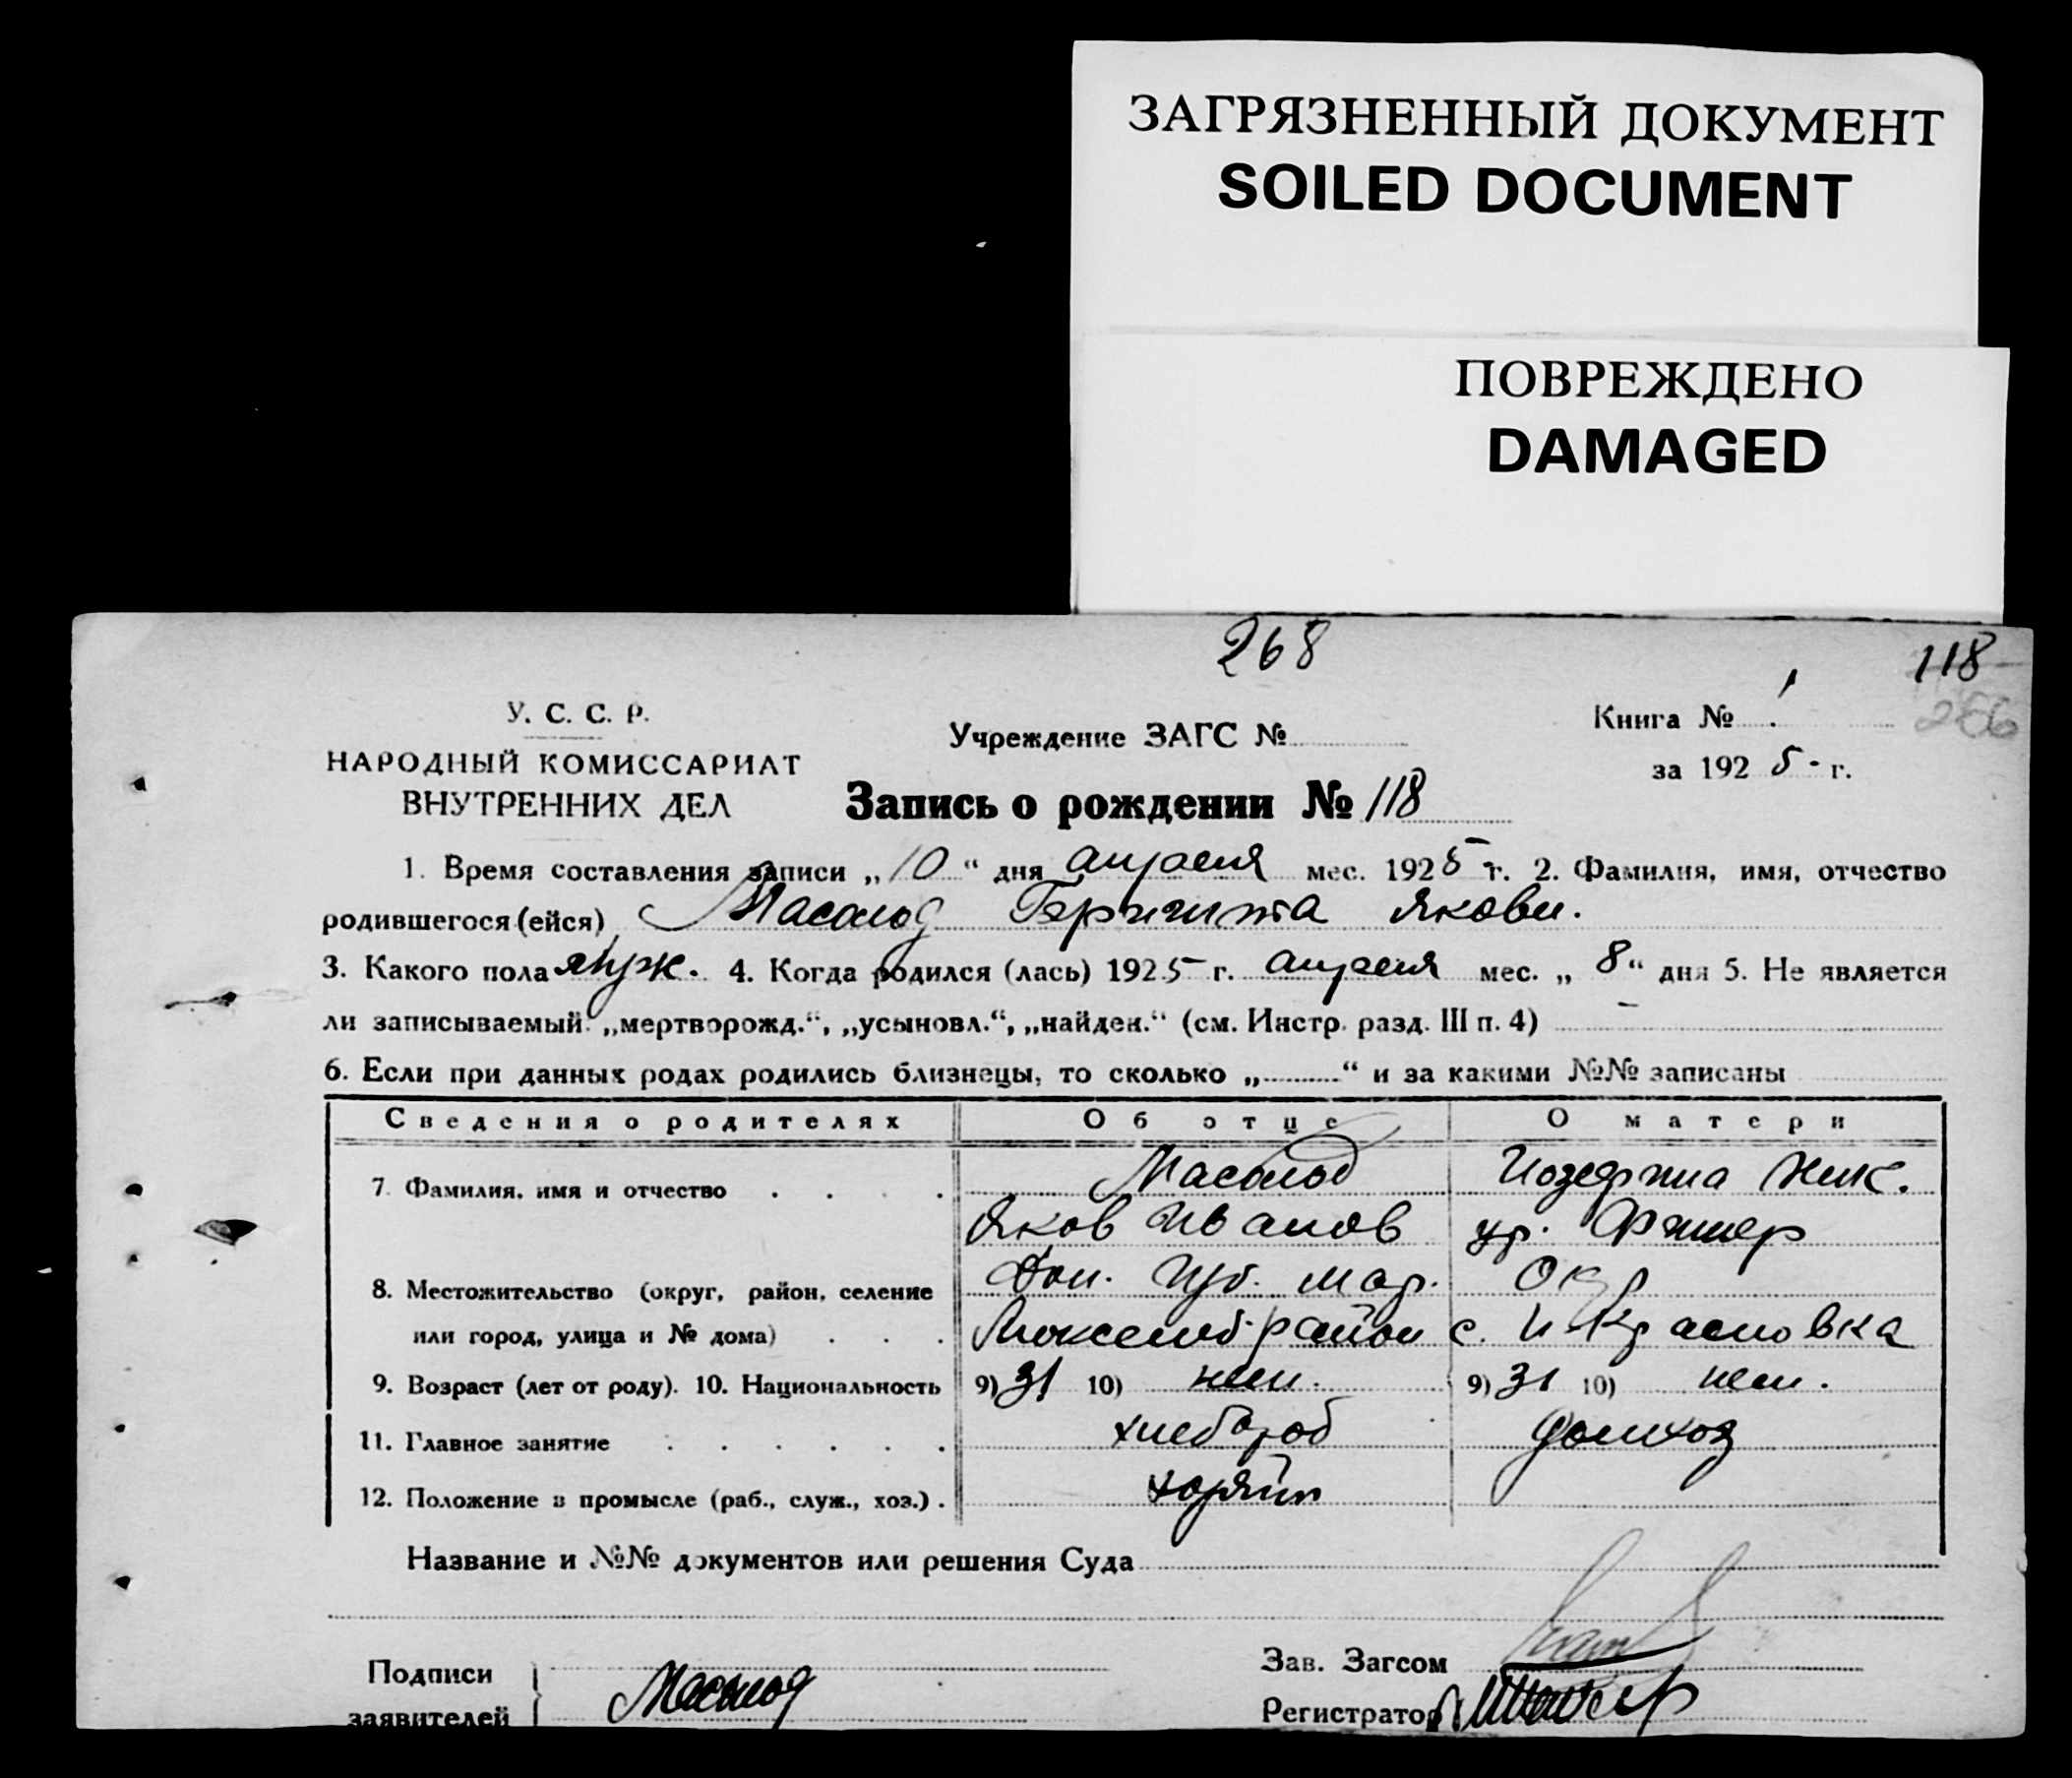 ЗАГРЯЗНЕННЫЙ ДОКУМЕНТ
SOILED DOCUMENT
ПОВРЕЖДЕНО
DAMAGED
268
118
256
У. С. С. Р.
НАРОДНЫЙ КОМИССАРИАТ
ВНУТРЕННИХ ДЕЛ
Учреждение ЗАГС №
Книга № 1
за 1925 г.
Запись о рождении № 118
1. Время составления записи „10“ дня апреля мес. 1925 г. 2. Фамилия, имя, отчество
родившегося (ейся) Яковл.
3. Какого пола муж. 4. Когда родился (лась) 1925 г. апреля мес. „8“ дня 5. Не является
ли записываемый: „мертворожд.“, „усыновл.“, „найден.“ (см. Инстр. разд. III п. 4) –
6. Если при данных родах родились близнецы, то сколько „..........“ и за какими №№ записаны
Сведения о родителях Об отце О матери
7. Фамилия, имя и отчество Ник.
Яков Иванов ур. Фишер
Дон. Губ. Мар. Окр
8. Местожительство (округ, район, селение
или город, улица и № дома) Люксемб. район с. Н-Красновка
9. Возраст (лет от роду). 10. Национальность 9) 31 10) нем. 9) 31 10) нем.
11. Главное занятие хлебороб домхоз
12. Положение в промысле (раб., служ., хоз.) хозяин
Название и №№ документов или решения Суда
Подписи
заявителей
Зав. Загсом
Регистратор